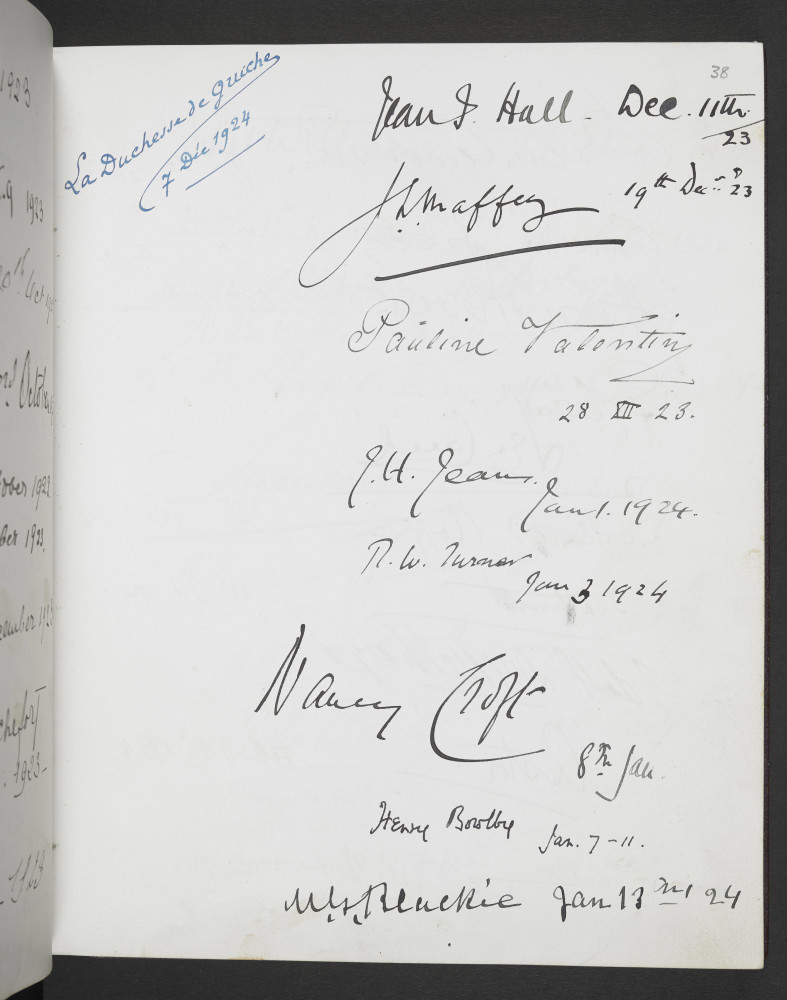 38
La Duchesse de Guiche
7 Déc 1924
Jean F. Hall. Dec. 11th.
23
19th Dec. 23
Pauline Valentin
28 XII 23.
J.H. Jeans. Jan 1. 1924.
R. W. Turner
Jan 3 1924
Nancy Croft
8th Jan.
Henry Bowlby Jan. 7-11.
Blackie Jan 13 24
1923
9 1923
October
1923
1923
1923-